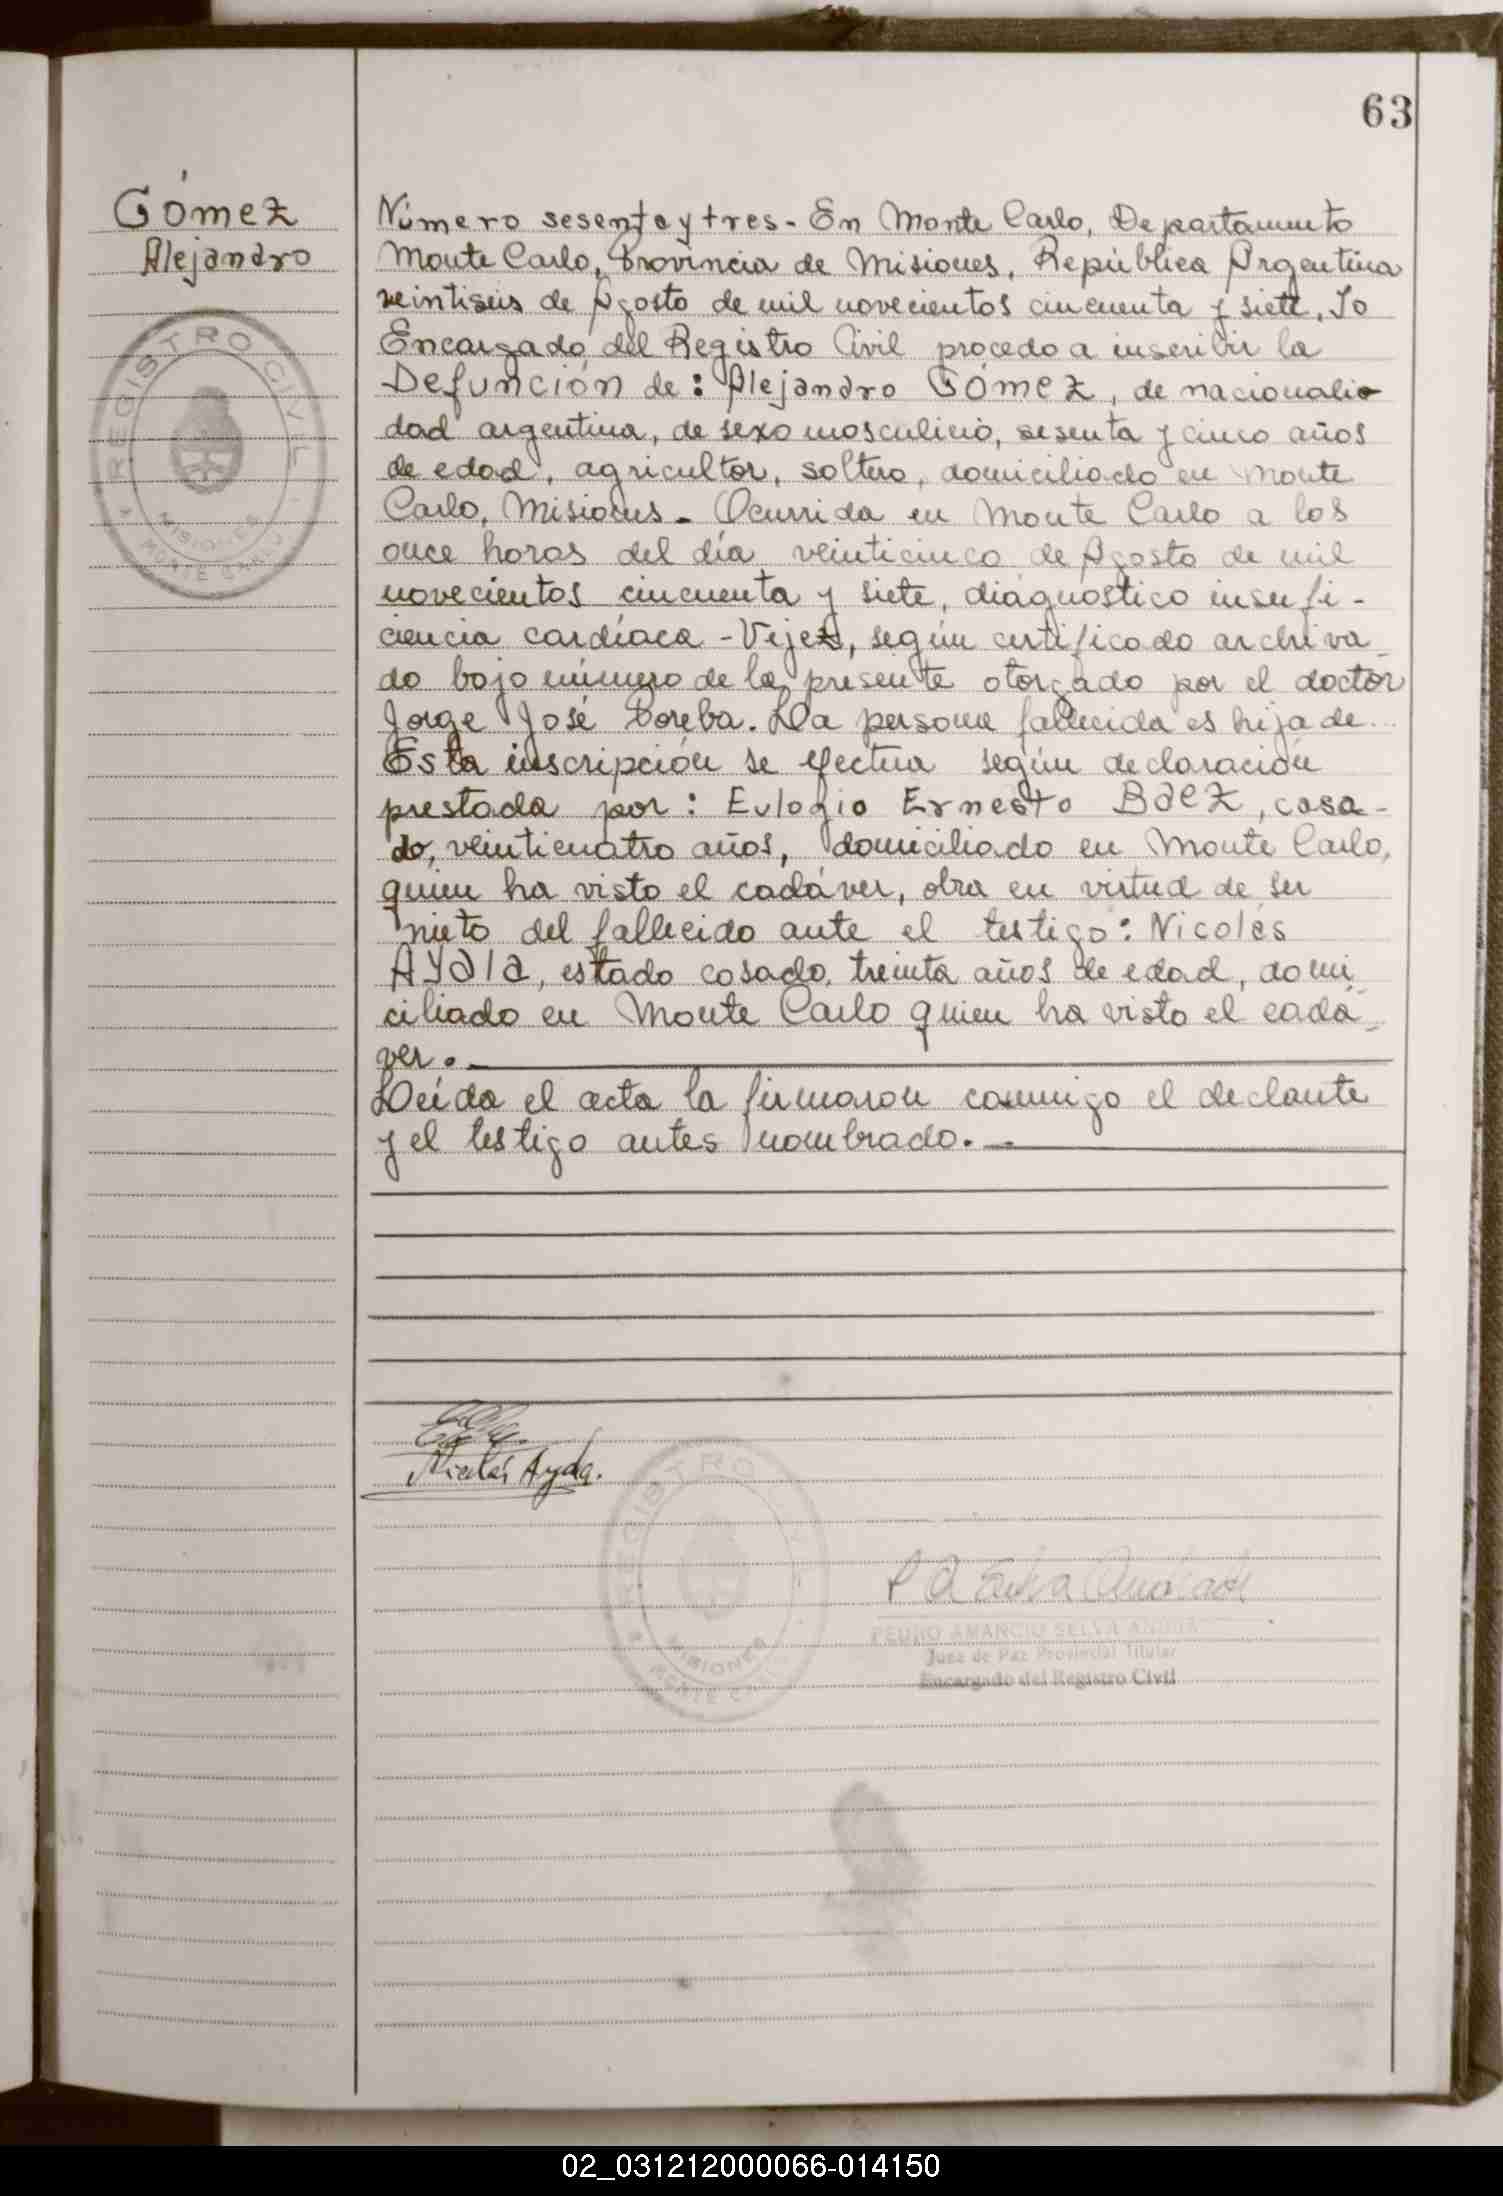 63
Gómez
Alejandro
REGISTRO CIVIL
MISIONES
MONTE CARLO
Número sesenta y tres - En Monte Carlo, Departamento
Monte Carlo, Provincia de Misiones, República Argentina
veintiseis de Agosto de mil novecientos cincuenta y siete, Yo
Encargado del Registro Civil procedo a inscribir la
Defunción de: Alejandro GÓMEZ, de nacionali-
dad argentina, de sexo masculino, sesenta y cinco años
de edad, agricultor, soltero, domiciliado en Monte
Carlo, Misiones - Ocurrida en Monte Carlo a los
once horas del día veinticinco de Agosto de mil
novecientos cincuenta y siete, diagnostico insufi-
ciencia cardíaca - Vejez, según certificado archiva_
do bajo número de la presente otorgado por el doctor
Jorge José Boreba. La persona fallecida es hija de...
Esta inscripción se efectua según declaración
prestada por: Eulogio Ernesto Baez, casa-
do, veinticuatro años, domiciliado en Monte Carlo,
quien ha visto el cadáver, obra en virtud de ser
nieto del fallecido ante el testigo: Nicolás
Ayala, estado casado, treinta años de edad, domi_
ciliado en Monte Carlo quien ha visto el cadá_
ver.
Leída el acta la firmaron conmigo el declante
y el testigo antes nombrado.
Nicolás Ayala.
REGISTRO CIVIL
MISIONES
MONTE CARLO
P A Selva Andrade
PEDRO AMANCIO SELVA ANDRA
Juez de Paz Provincial Titular
Encargado del Registro Civil
02_031212000066-014150